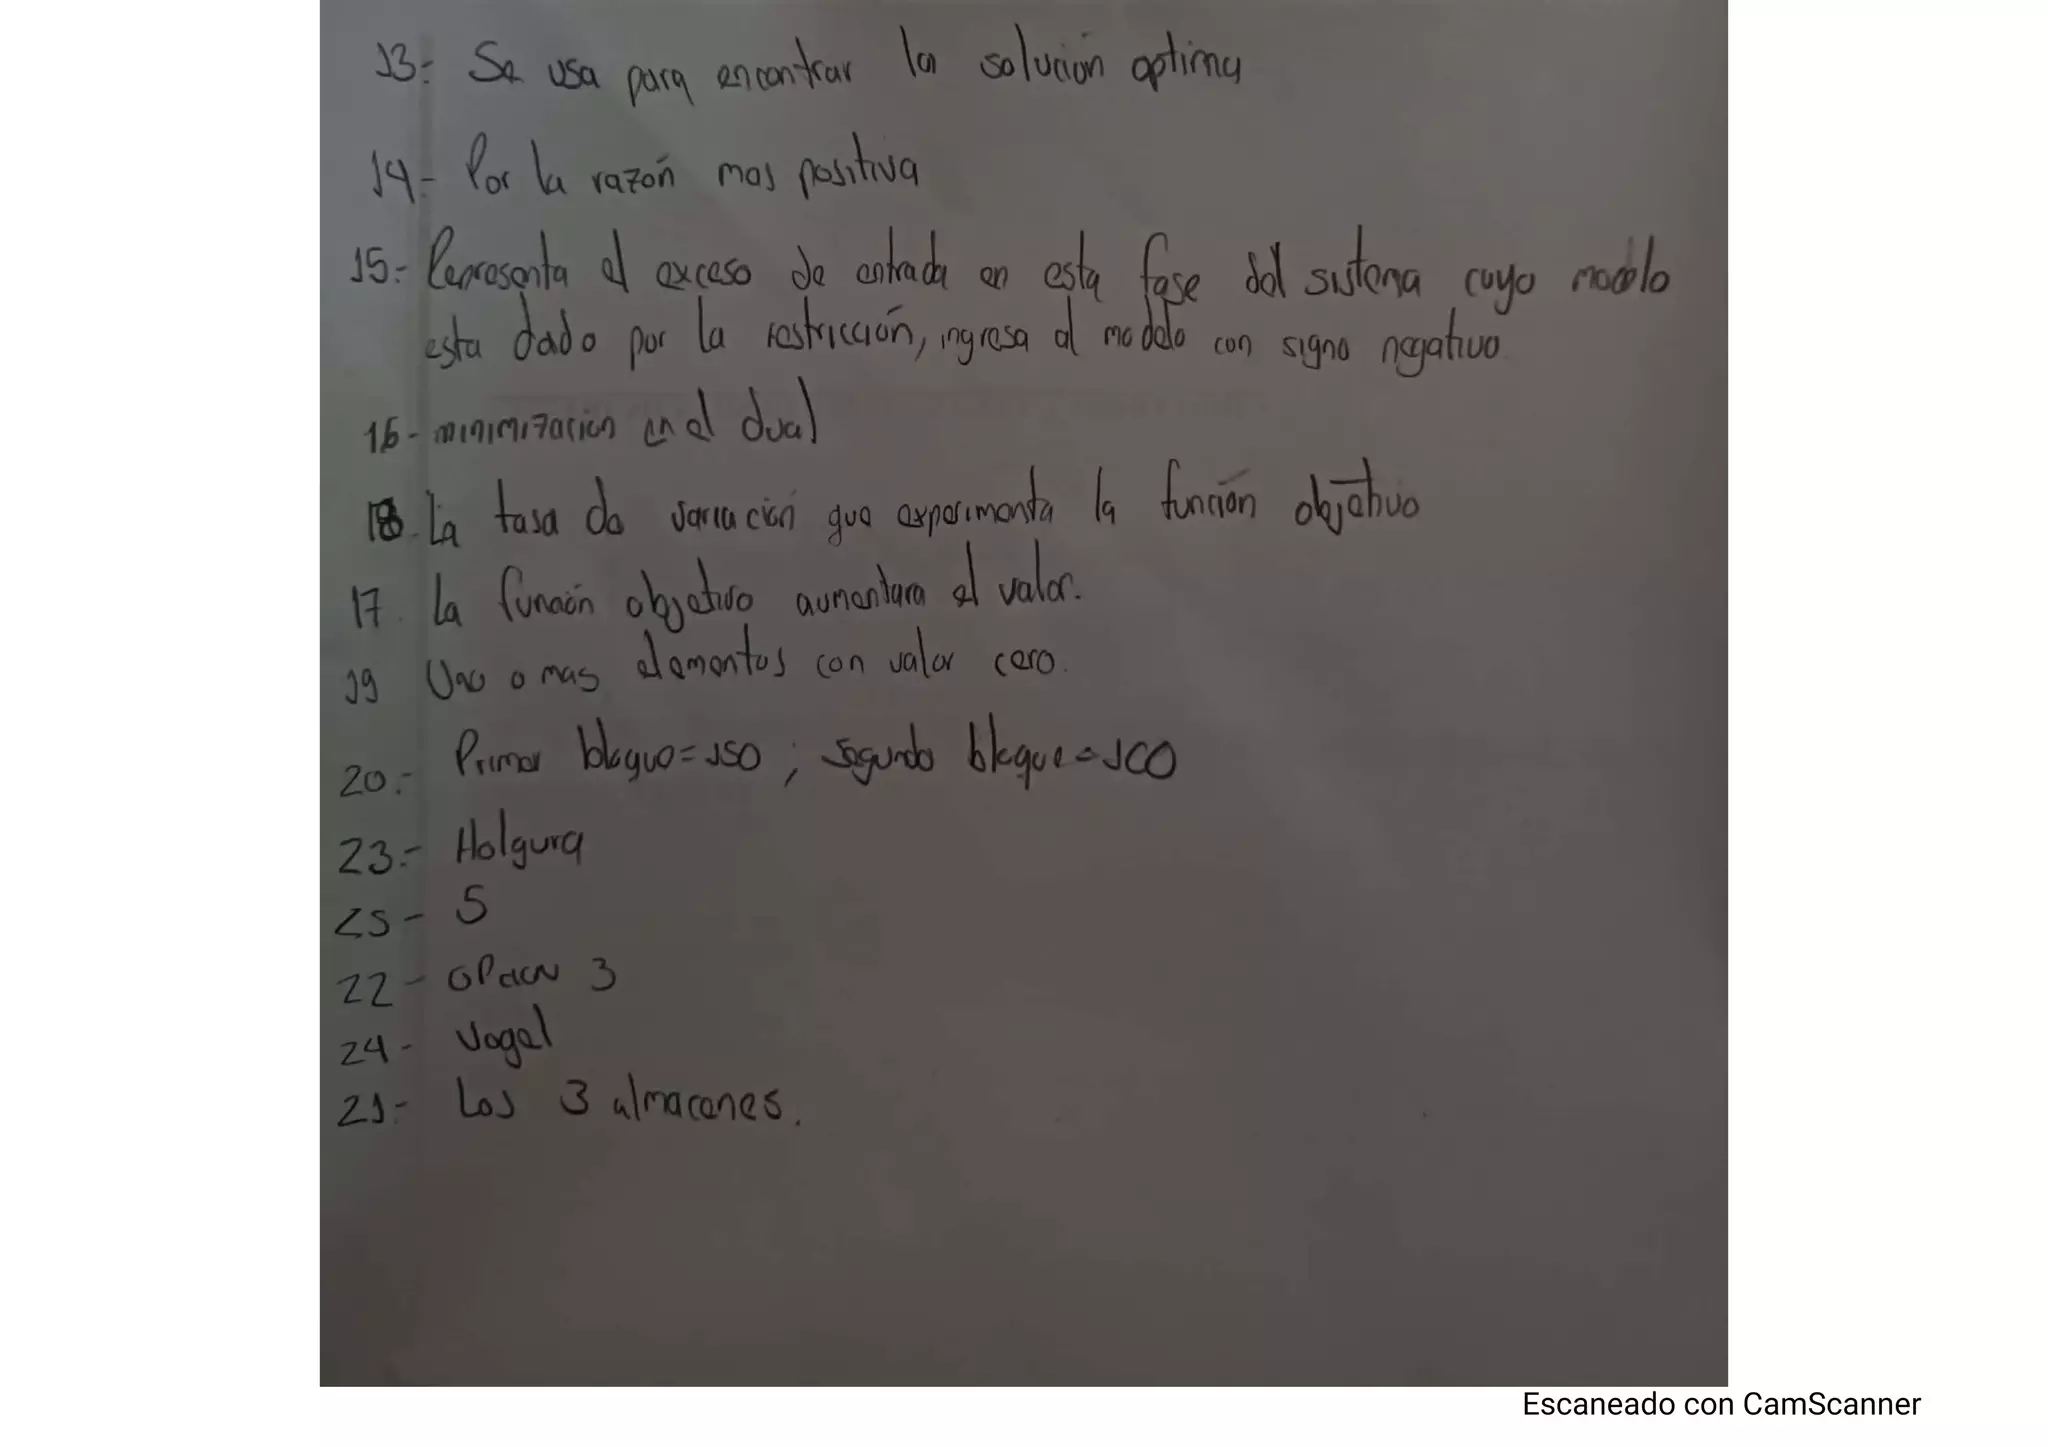 13:- Se usa para encontrar la solución optima
14- Por la razón mas positiva
15:- Representa el exceso de entrada en esta fase del sistema cuyo modelo
esta dado por la restricción, ingresa al modelo con signo negativo
16- minimización en el dual
18. La tasa de variación que experimenta la función objetivo
17. La función objetivo aumentara el valor.
19 Uno o mas elementos con valor cero.
20:- Primer bloque=150 ; segundo bloque=100
23:- Holgura
25- 5
22- opcion 3
24- Vogel
21:- Los 3 almacenes.
Escaneado con CamScanner